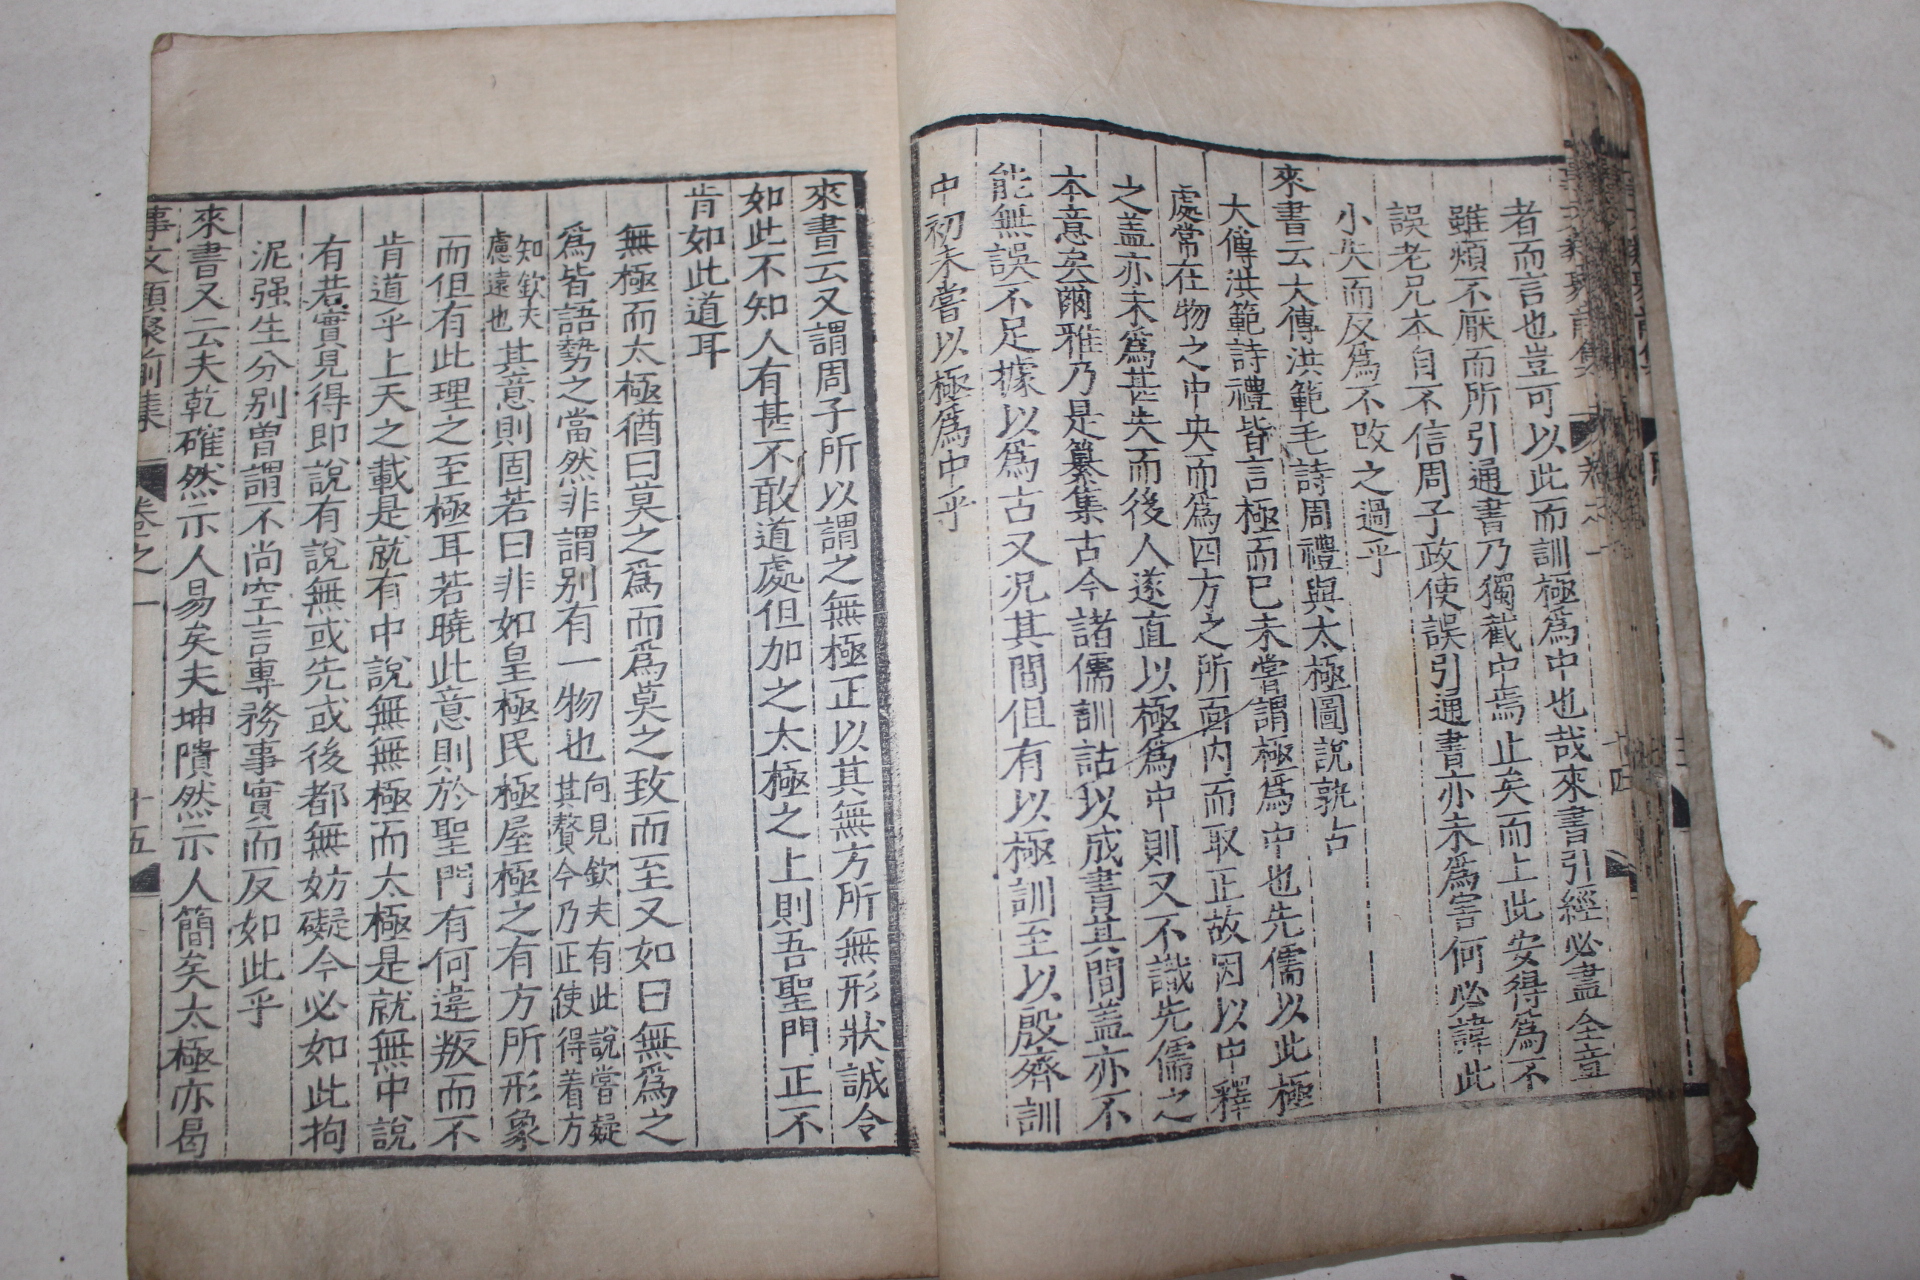 者而言也豈可以此而訓極爲中也哉來書引經必盡全章
雖煩不厭而所引通書乃獨截中焉止矣而上此安得爲不
誤老兄本自不信周子政使誤引通書亦未爲害何必諱此
小失而反爲不改之過乎
來書云大傳洪範毛詩周禮與太極圖說孰占
大傳洪範詩禮皆言極而已未嘗謂極爲中也先儒以此極
處常在物之中央而爲四方之所面内而取正故因以中釋
之盖亦未爲甚失而後人遂直以極爲中則又不識先儒之
本意矣爾雅乃是纂集古今諸儒訓詁以成書其間盖亦不
能無誤不足據以爲古又况其間但有以極訓至以殷齊訓
中初未嘗以極爲中乎
來書云又謂周子所以謂之無極正以其無方所無形狀誠令
如此不知人有甚不敢道處但加之太極之上則吾聖門正不
肯如此道耳
無極而太極猶曰莫之爲而爲莫之致而至又如曰無爲之
爲皆語勢之當然非謂别有一物也向見欽夫有此說當疑其贅今乃正使得着方
知欽夫慮遠也其意則固若曰非如皇極民極屋極之有方所形象
而但有此理之至極耳若曉此意則於聖門有何違叛而不
肯道乎上天之載是就有中說無無極而太極是就無中說
有若實見得即說有說無或先或後都無妨礙今必如此拘
泥强生分别曽謂不尚空言專務事實而反如此乎
來書又云夫乾確然示人易矣夫坤隤然示人簡矣太極亦曷
事文類聚前集 卷之一 十五